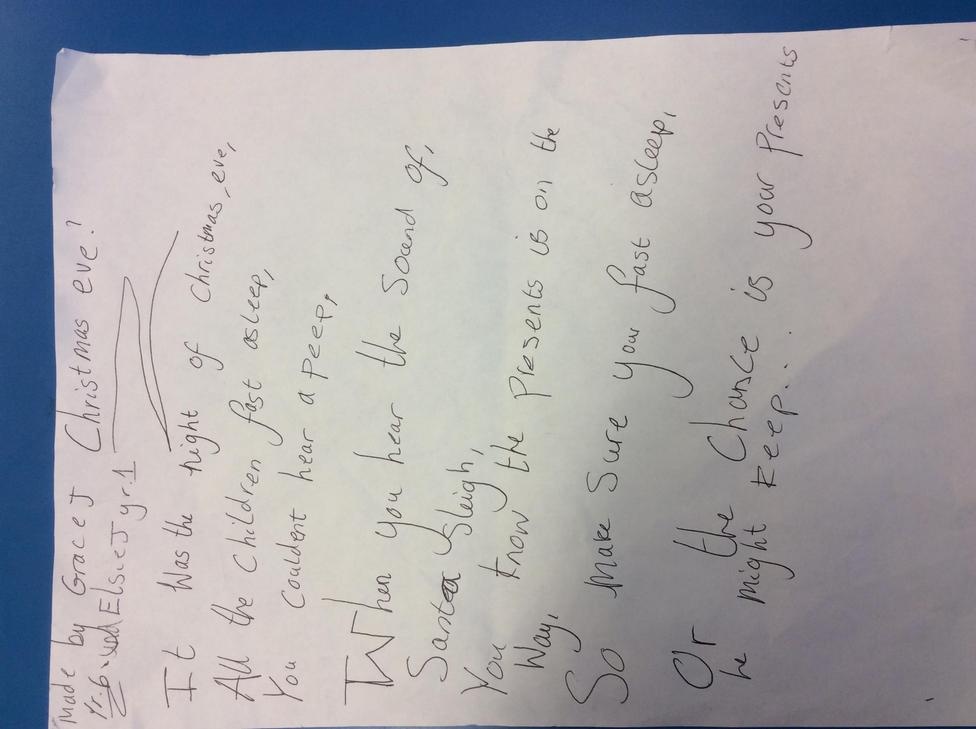 Made by Grace J Christmas eve!
Yr.6. Elsie J yr.1
It Was the night of Christmas eve,
All the Children fast asleep,
You Couldent hear a Peep,
When you hear the Sound of,
Santa Sleigh,
You know the Presents is on the
Way,
So make Sure your fast asleep,
Or the Chance is your Presents
he might keep...